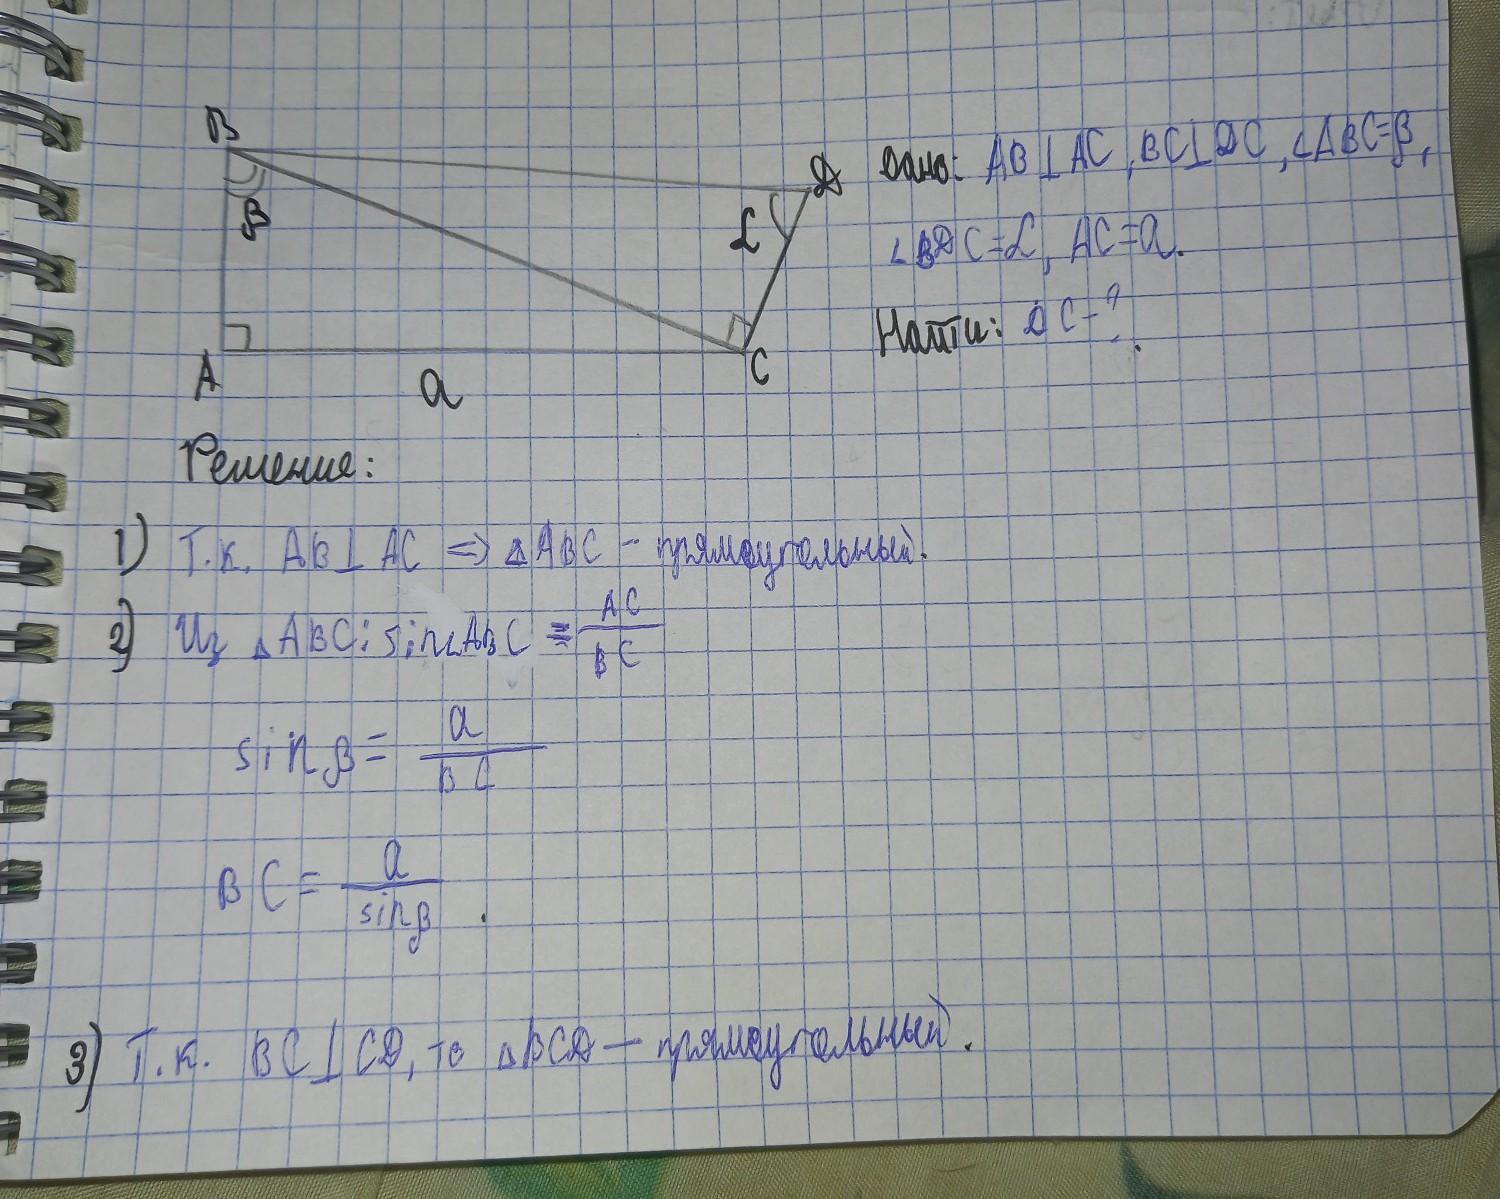 B
D
β
α
A
C
a
Дано: AB⊥AC, BC⊥DC, ∠ABC=β,
∠BDC=α, AC=a.
Найти: DC-?
Решение:
1) Т.к. AB⊥AC => △ABC - прямоугольный.
2) Из △ABC: sin∠ABC = AC/BC
sinβ = a/BC
BC = a/sinβ.
3) Т.к. BC⊥CD, то △BCD - прямоугольный.